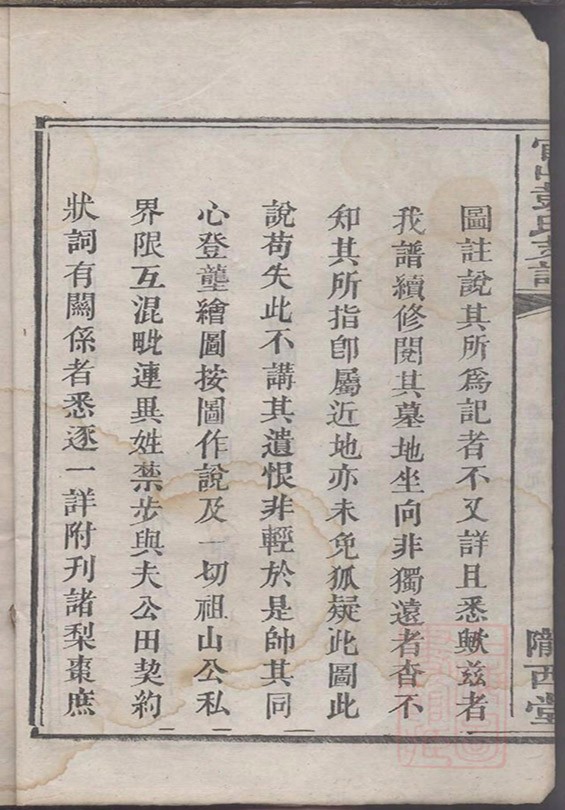 圖註說其所爲記者不又詳且悉歟茲者
我譜續修閱其墓地坐向非獨遠者杳不
知其所指卽屬近地亦未免狐疑此圖此
說苟失此不講其遺恨非輕於是帥其同
心登壟繪圖按圖作說及一切祖山公私
界限互混毗連異姓禁步與夫公田契約
狀詞有關係者悉逐一詳附刊諸梨棗庶
隴西堂